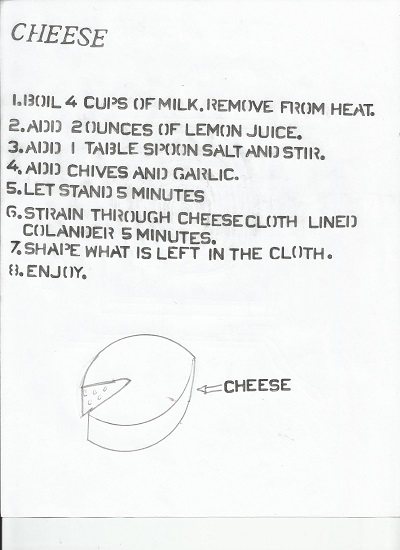 CHEESE
1. BOIL 4 CUPS OF MILK. REMOVE FROM HEAT.
2. ADD 2 OUNCES OF LEMON JUICE.
3. ADD 1 TABLE SPOON SALT AND STIR.
4. ADD CHIVES AND GARLIC.
5. LET STAND 5 MINUTES
6. STRAIN THROUGH CHEESECLOTH LINED
COLANDER 5 MINUTES.
7. SHAPE WHAT IS LEFT IN THE CLOTH.
8. ENJOY.
CHEESE